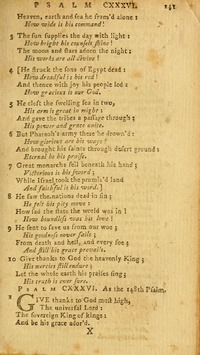 PSALM CXXXVI. 141
Heaven, earth and sea he fram'd alone:
How wide is his command!
3 The sun supplies the day with light:
How bright his counsels shine!
The moon and stars adorn the night:
His works are all divine!
4 [He struck the sons of Egypt dead:
How dreadful is his rod!
And thence with joy his people led:
How gracious is our God.
5 He cleft the swelling sea in two,
His arm is great in might:
And gave the tribes a passage thro':
His power and grace unite.
6 But Pharaoh's army there he drown'd:
How glorious are his ways!
And brought his saints through desert ground:
Eternal be his praise.
7 Great monarchs fell beneath his hand;
Victorious is his sword;
While Israel took the promis'd land
And faithful is his word.]
8 He saw the nations dead in sin;
He felt his pity move:
How sad the state the world was in!
How boundless was his love!
9 He sent to save us from our woe;
His goodness never fails;
From death and hell, and every foe;
And still his grace prevails.
10 Give thanks to God the heavenly King;
His mercies still endure;
Let the whole earth his praises sing;
His truth is ever sure.
PSALM CXXXVI. As the 148th Psalm.
GIVE thanks to God most high,
The universal Lord:
The sovereign King of kings:
And be his grace ador'd.
X